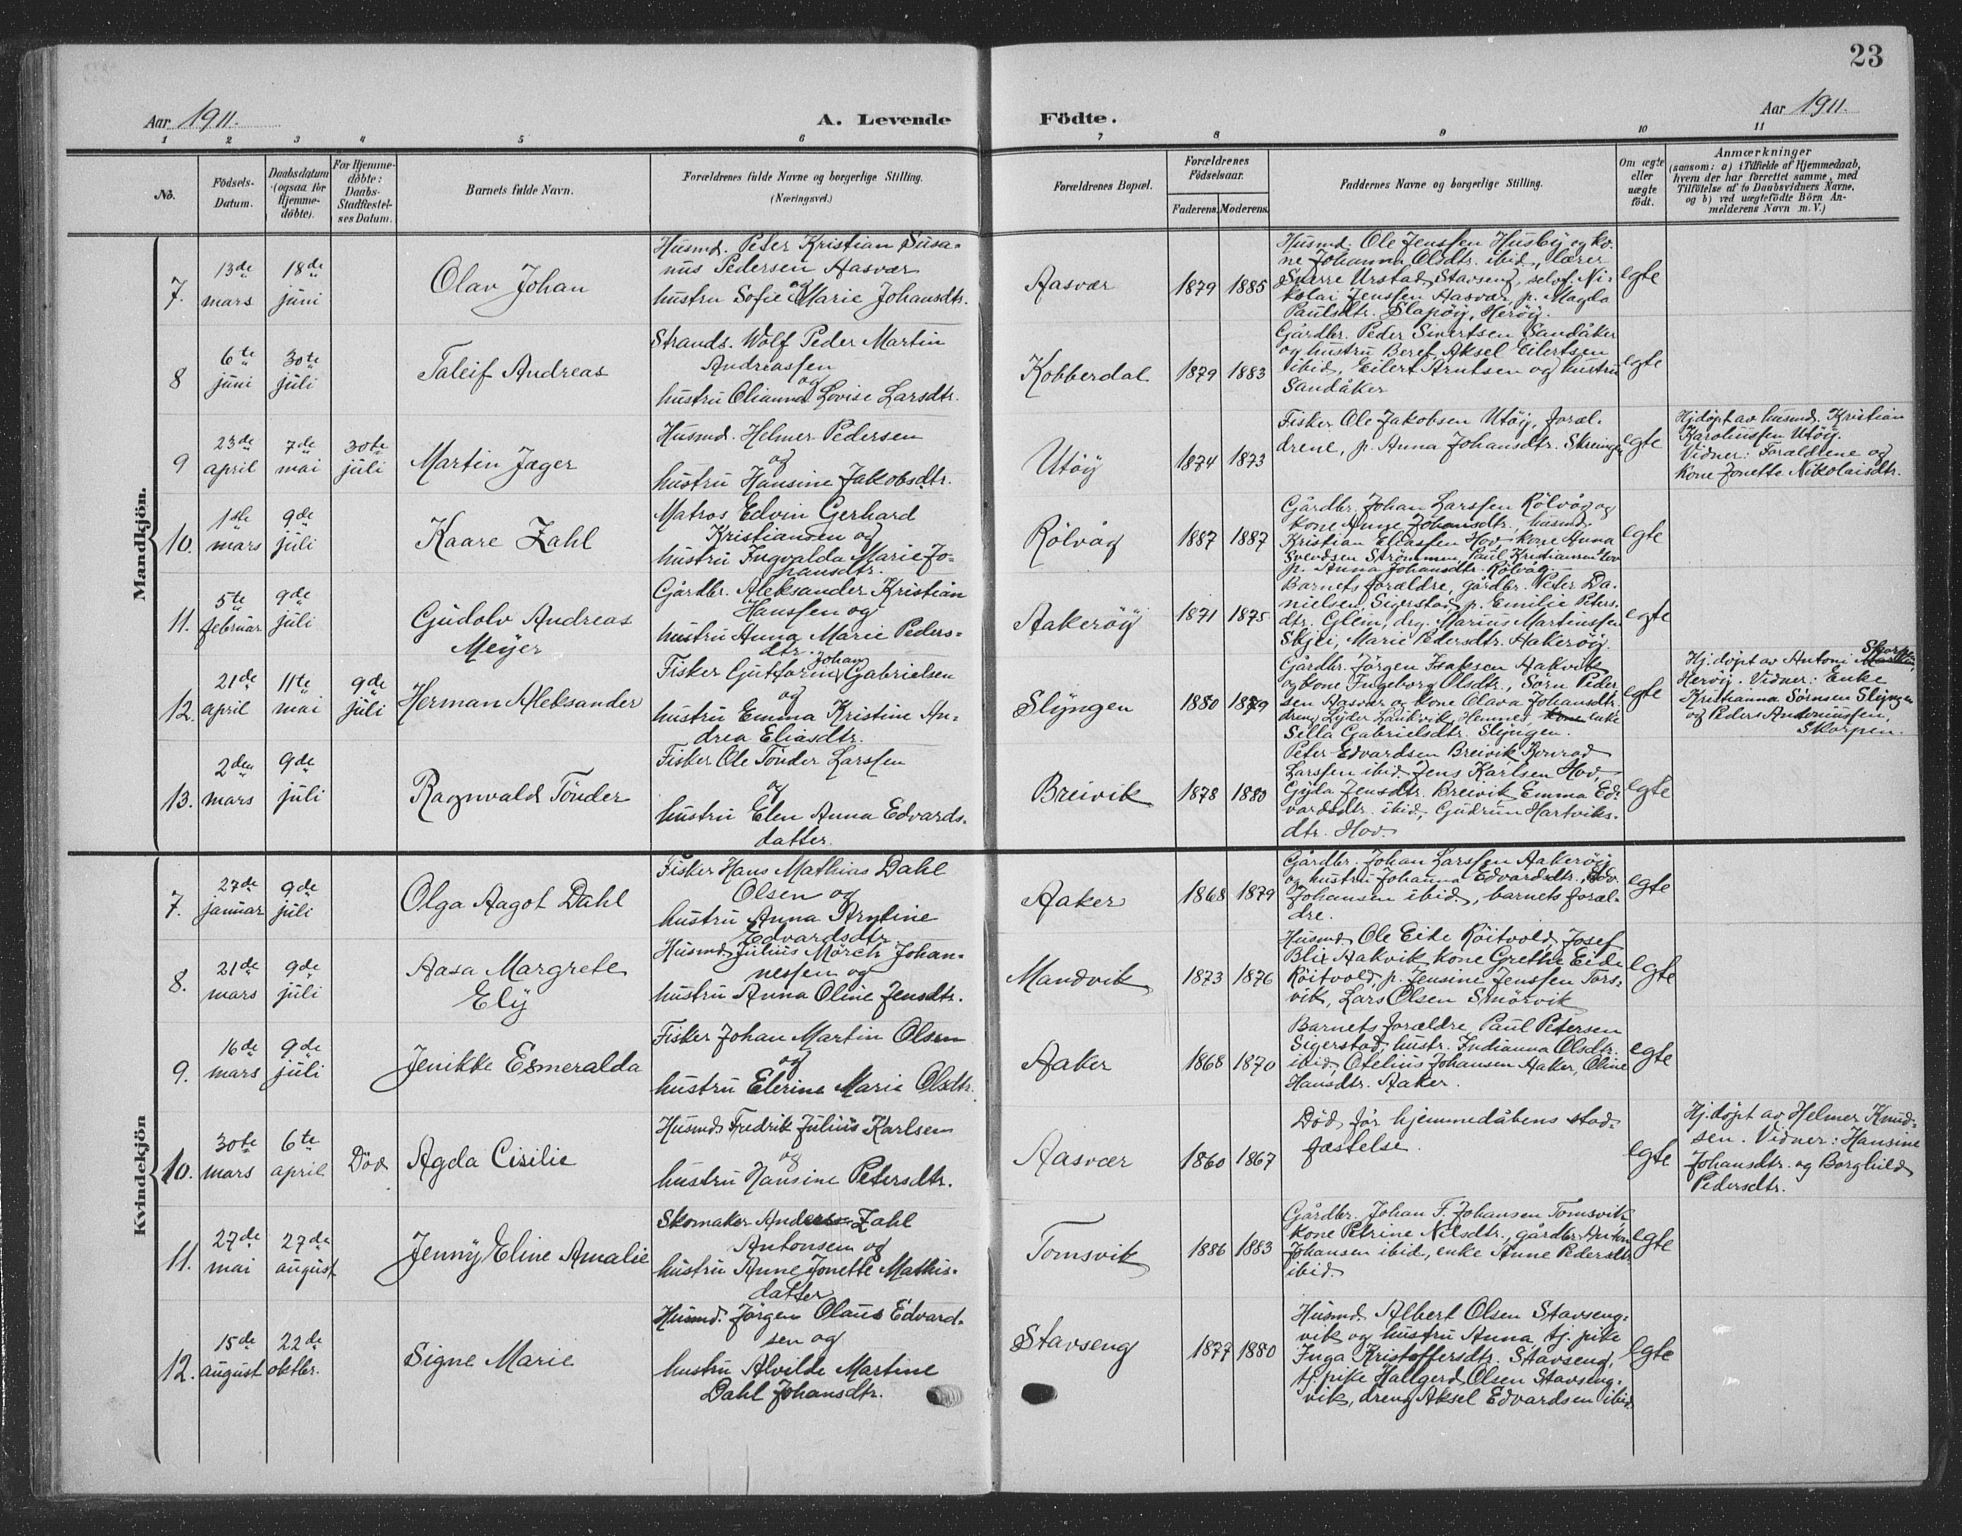 23
Aar 1911. A. Levende Födte. Aar 1911.
1 2 3 4 5 6 7 8 9 10 11
No.
Födsels-
Datum.
Daabsdatum
(ogsaa for
Hjemme-
döbte).
For Hjemme-
døbte:
Daabs-
Stadfæstel-
ses Datum.
Barnets fulde Navn.
Forældrenes fulde Navne og borgerlige Stilling.
(Næringsvei.)
Forældrenes Bopæl.
Forældrenes
Fødselsaar.
Faderens. Moderens.
Faddernes Navne og borgerlige Stilling.
Om ægte
eller
uægte
født.
Anmærkninger
(saasom: a) i Tilfælde af Hjemmedaab,
hvem der har forrettet samme, med
Tilføielse af to Daabsvidners Navne,
og b) ved uægtefödte Börn An-
melderens Navn m. V.)
Mandkjön.
7.
13de
mars
18de
juni
Olav Johan
Husmd. Peter Kristian Susa-
nus Pedersen Aasvær
og
hustru Sofie Marie Johansdtr.
Aasvær
1879 1885
Husmd. Ole Jenssen Husby og ko-
ne Johanna Olsdtr. ibid, lærer
Sverre Urstad Stavseng, selvf. Ni-
kolai Jenssen Aasvær, p. Magda
Paulsdtr. Slapøy, Herøy.
egte
8
6te
juni
30te
juli
Taleif Andreas
Strands. Wolf Peder Martin
Andreassen
og
hustru Olianna Lovise Larsdtr.
Kobberdal
1879 1883
Gårdbr. Peder Sivertsen Sandåker
og hustru Beret, Aksel Eilertsen
ibid, Eilert Arntsen og hustru
Sandåker
egte
9
23de
april
7de
mai
30te
juli
Martin Jæger
Husmd. Helmer Pedersen
og
hustru Hansine Jakobsdtr.
Utöy
1874 1873
Fisker Ole Jakobsen Utöy, foræl-
drene, p. Anna Johansdtr. Skeinga
egte
Hj.døpt av husmd. Kristian
Karolinssen Utöy.
Vidner: Forældrene og
kone Jonette Nikolaisdtr.
10.
1ste
mars
9de
juli
Kaare Zahl
Matros Edvin Gerhard
Kristiansen og
hustru Ingvalda Marie Jo-
hansdtr.
Rölvåg
1887 1887
Gårdbr. Johan Larssen Rölvåg og
kone Anne Johansdtr., husmd.
Kristian Eliassen Hov, kone Anna
Svendsen Strömmen, Paul Kristiansen Hov
p. Anna Johansdtr. Rölvåg.
egte
11.
5te
februar
9de
juli
Gudolv Andreas
Meyer
Gårdbr. Aleksander Kristian
Hanssen og
hustru Anna Marie Peders-
dtr.
Aakeröy
1871 1875
Barnets forældre, gårdbr. Peter Da-
nielsen Sigerstad, p. Emilie Peters-
dtr. Glein, drg. Marius Martenssen
Skjei, Marie Pedersdtr. Aakeröy.
egte
12.
21de
april
11te
mai
9de
juli
Herman Aleksander
Johan
Fisker Guttorm Gabrielsen
og
hustru Emma Kristine An-
drea Eliasdtr.
Slyngen
1880 1879
Gårdbr. Jörgen Isaksen Aakvik
og kone Ingeborg Olsdtr., Sörn Peder-
sen Aasvær og kone Olava Johansdtr.
dreng Lyder Laukvik, Hemnes, kone enke
Silla Gabrielsdtr. Slyngen.
egte
Skorpen
Hj.døpt av Antoni
Herøy. Vidner: Enke
Kristianna Sørnsen Slyngen
og Peder Antoniussen,
Skorpen.
13.
2den
mars
9de
juli
Ragnvald Tönder
Fisker Ole Tönder Larssen
og
hustru Elen Anna Edvards-
datter.
Breivik
1878 1880
Peter Edvardsen Breivik, Konrad
Larssen ibid, Jens Karlsen Hov,
Gyla Jensdtr. Breivik, Emma Ed-
vardsdtr. ibid, Gudrun Hartviks-
dtr. Hov.
egte
Kvindekjön
7.
27de
januar
9de
juli
Olga Aagot Dahl
Fisker Hans Mathias Dahl
Olsen og
hustru Anna Arntine
Edvardsdtr.
Aaker
1868 1879
Gårdbr. Johan Larssen Aakeröy
og hustru Johanna Edvardsdtr., Edv.
Johansen ibid, barnets foræl-
dre.
egte
8.
21de
mars
9de
juli
Aasa Margrete
Ely
Husmd. Julius Mörch Johan-
nessen og
hustru Anna Oline Jensdtr.
Mandvik
1873 1876
Husmd. Ole Eide Röitvold, Josef
Blix Aakvik, kone Grethe Eide
Röitvold, p. Jensine Jenssen Tors-
vik, Lars Olsen Smörvik
egte
9.
16de
mars
9de
juli
Jenikke Esmeralda
Fisker Johan Martin Olsen
og
hustru Elerine Marie Olsdtr.
Aaker
1868 1870
Barnets forældre, Paul Petersen
Sigerstad, hustr. Indianna Olsdtr.
ibid, Otelius Johansen Aaker, Oline
Hansdtr. Aaker.
egte
10.
30te
mars
6te
april
Död
Agda Cisilie
Husmd. Fredrik Julius Karlsen
og
hustru Hansine Petersdtr.
Aasvær
1860 1867
Død før hjemmedåbens stad-
fæstelse.
egte
Hj.døpt av Helmer Knud-
sen. Vidner: Hansine
Johansdtr. og Borghild
Pedersdtr.
11.
27de
mai
27de
august
Jenny Eline Amalie
Skomaker Anders Zahl
Antonsen og
hustru Anne Jonette Mathis-
datter
Tomsvik
1886 1883
Gårdbr. Johan F. Johansen Tomsvik,
kone Petrine Nilsdtr., gårdbr. Anton
Johansen ibid, enke Anne Pedersdtr.
ibid
egte
12.
15de
august
22de
oktbr.
Signe Marie
Husmd. Jörgen Olaus Edvard-
sen og
hustru Alvilde Martine
Dahl Johansdtr.
Stavseng
1877 1880
Husmd. Albert Olsen Stavseng-
vik og hustru Anna, tj. pike
Inga Kristoffersdtr. Stavseng,
tj. pike Hallgerd Olsen Stavseng-
vik, dreng Aksel Edvardsen ibid.
egte